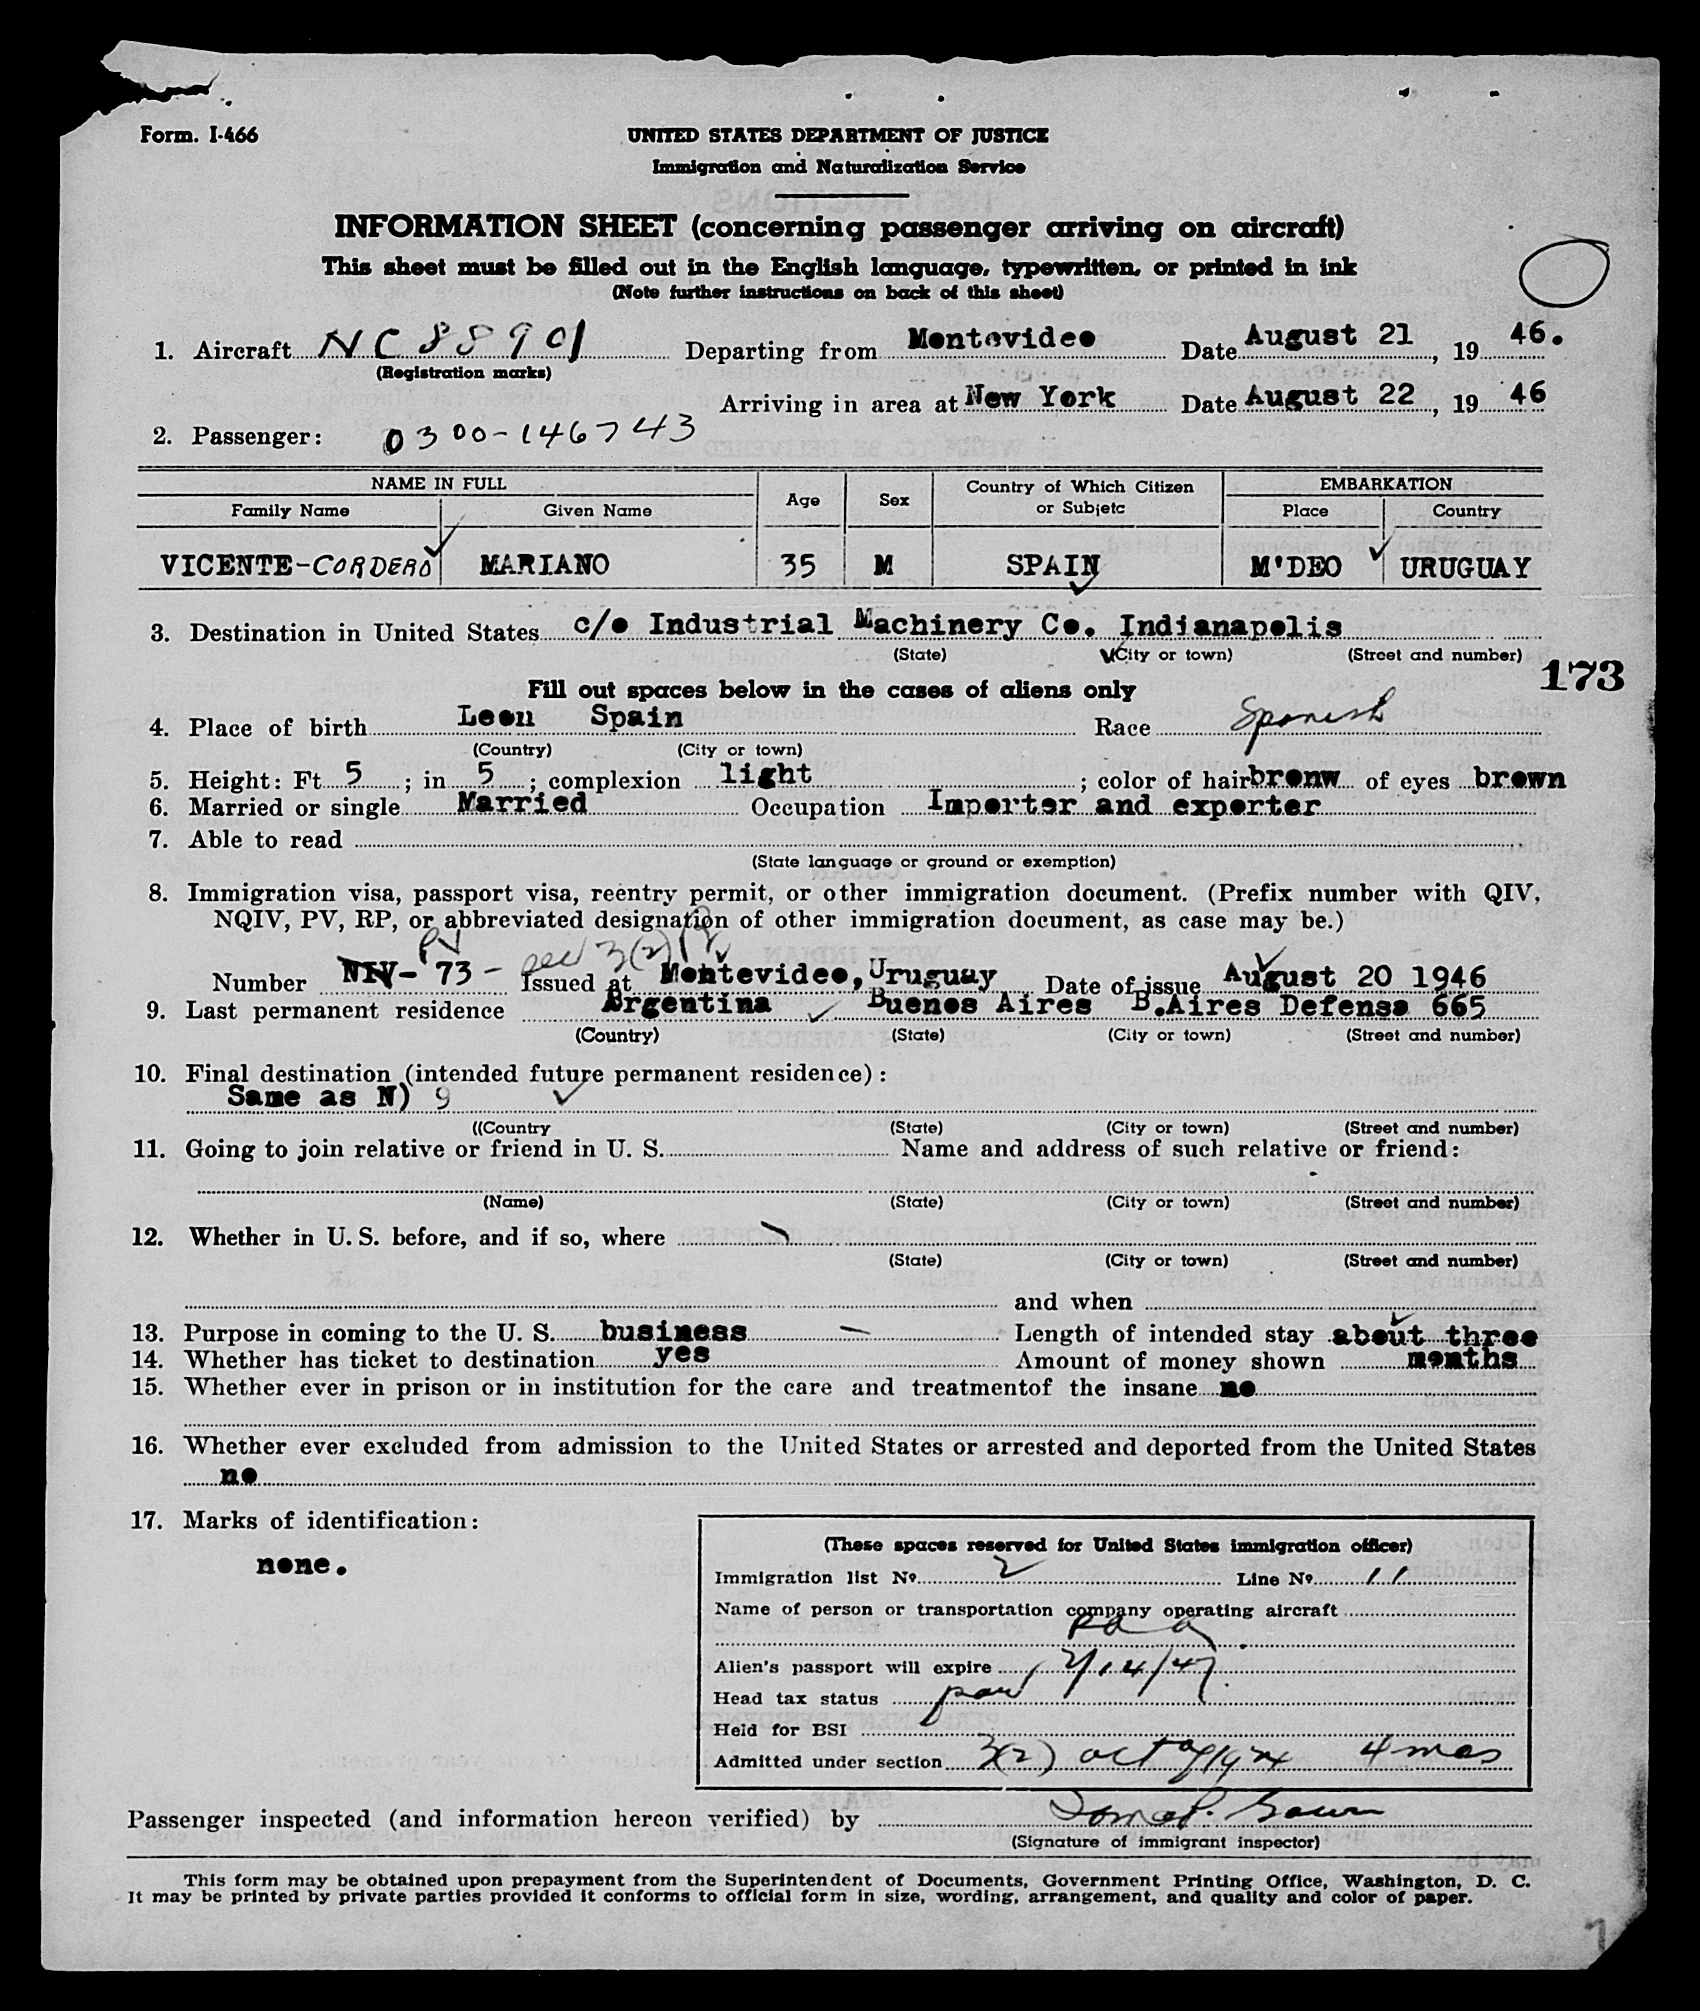 Form. I-466
UNITED STATES DEPARTMENT OF JUSTICE
Immigration and Naturalization Service
INFORMATION SHEET (concerning passenger arriving on aircraft)
This sheet must be filled out in the English language, typewritten, or printed in ink
(Note further instructions on back of this sheet)
1. Aircraft NC 88901 Departing from Montevideo Date August 21, 19 46.
(Registration marks)
Arriving in area at New York Date August 22, 19 46
2. Passenger: 0300-146743
NAME IN FULL Age Sex Country of Which Citizen or Subjetc EMBARKATION
Family Name Given Name Place Country
VICENTE-CORDERO MARIANO 35 M SPAIN M'DEO URUGUAY
3. Destination in United States c/o Industrial Machinery Co. Indianapolis
(State) (City or town) (Street and number)
173
Fill out spaces below in the cases of aliens only
4. Place of birth Leon Spain Race Spanish
(Country) (City or town)
5. Height: Ft 5 ; in 5 ; complexion light ; color of hair bronw of eyes brown
6. Married or single Married Occupation Importer and exporter
7. Able to read
(State language or ground or exemption)
8. Immigration visa, passport visa, reentry permit, or other immigration document. (Prefix number with QIV,
NQIV, PV, RP, or abbreviated designation of other immigration document, as case may be.)
PV sec 3(2)
Number NIV- 73 - Issued at Montevideo, Uruguay Date of issue August 20 1946
9. Last permanent residence Argentina Buenos Aires B.Aires Defensa 665
(Country) (State) (City or town) (Street and number)
10. Final destination (intended future permanent residence):
Same as N) 9
((Country (State) (City or town) (Street and number)
11. Going to join relative or friend in U. S. Name and address of such relative or friend:
(Name) (State) (City or town) (Street and number)
12. Whether in U. S. before, and if so, where
(State) (City or town) (Street and number)
and when
13. Purpose in coming to the U. S. business — Length of intended stay about three
14. Whether has ticket to destination yes Amount of money shown months
15. Whether ever in prison or in institution for the care and treatmentof the insane no
16. Whether ever excluded from admission to the United States or arrested and deported from the United States
no
17. Marks of identification:
none.
(These spaces reserved for United States immigration officer)
Immigration list Nº 2 Line Nº 11
Name of person or transportation company operating aircraft
PAA
Alien's passport will expire
Head tax status
Held for BSI
Admitted under section 3(2) act of 1924 4 mos
Passenger inspected (and information hereon verified) by
(Signature of immigrant inspector)
This form may be obtained upon prepayment from the Superintendent of Documents, Government Printing Office, Washington, D. C.
It may be printed by private parties provided it conforms to official form in size, wording, arrangement, and quality and color of paper.